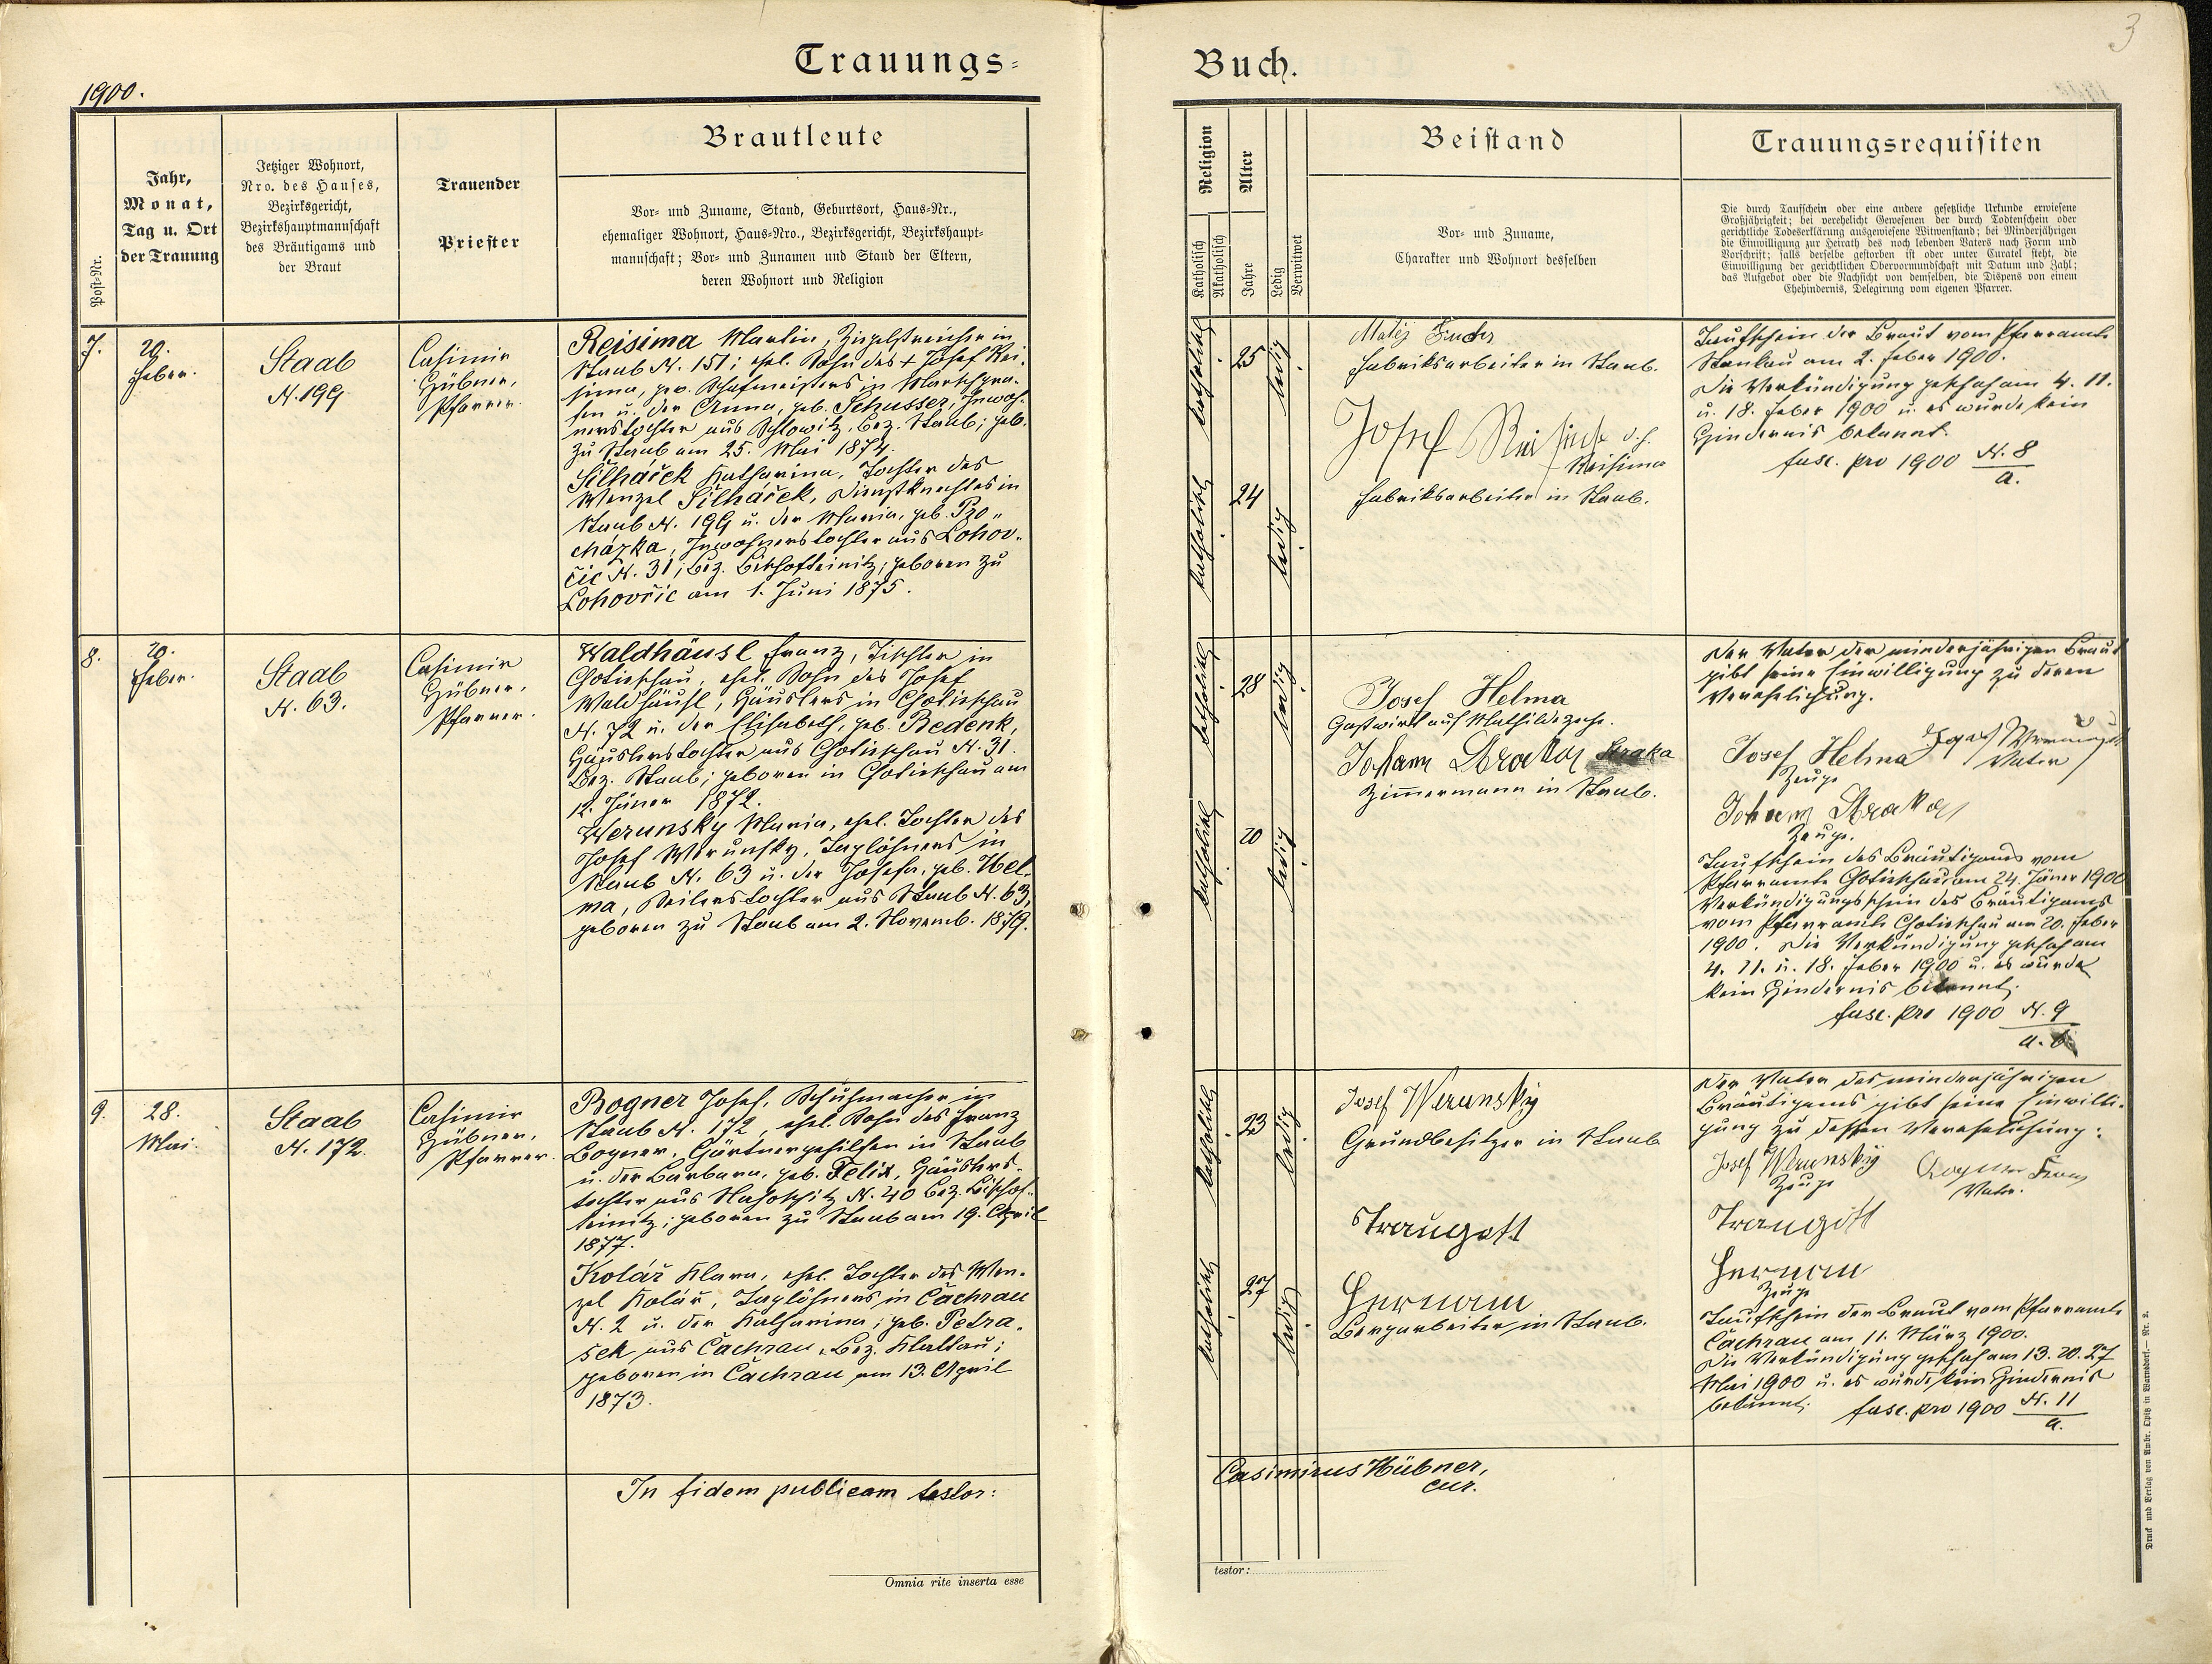 Trauungs=
Buch.
3
1900.
Post-Nr.
Jahr,
Monat,
Tag u. Ort
der Trauung
Jetziger Wohnort,
Nro. des Hauses,
Bezirksgericht,
Bezirkshauptmannschaft
des Bräutigams und
der Braut
Trauender
Priester
Brautleute
Vor- und Zuname, Stand, Geburtsort, Haus-Nr.,
ehemaliger Wohnort, Haus-Nro., Bezirksgericht, Bezirkshaupt-
mannschaft; Vor- und Zunamen und Stand der Eltern,
deren Wohnort und Religion
Religion
Katholisch
Akatholisch
Alter
Jahre
Ledig
Verwitwet
Beistand
Vor- und Zuname,
Charakter und Wohnort desselben
Trauungsrequisiten
Die durch Taufschein oder eine andere gesetzliche Urkunde erwiesene
Großjährigkeit; bei verehelicht Gewesenen der durch Todtenschein oder
gerichtliche Todeserklärung ausgewiesene Witwenstand; bei Minderjährigen
die Einwilligung zur Heirath des noch lebenden Vaters nach Form und
Vorschrift; falls derselbe gestorben ist oder unter Curatel steht, die
Einwilligung der gerichtlichen Obervormundschaft mit Datum und Zahl;
das Aufgebot oder die Nachsicht von demselben, die Dispens von einem
Ehehindernis, Delegirung vom eigenen Pfarrer.
7.
20.
Feber.
Staab
N. 199
Casimir
Hübner,
Pfarrer.
Reisima Martin, Ziegelstreicher in
Staab N. 151; ehel. Sohn des + Josef Rei-
sima, gew. Schafmeisters in
u. der Anna, geb. Schusser, Inwoh-
nerstochter aus Schlowitz, Bez. Staab; geb.
zu Staab am 25. Mai 1874.
Šilháček Katharina, Tochter des
Wenzel Šilháček, Dienstknechtes in
Staab N. 199 u. der Maria, geb. Pro-
cházka, Inwohnerstochter aus Lohov-
čic N. 31, Bez. Bischofteinitz; geboren zu
Lohovčic am 1. Juni 1875.
katholisch
25
ledig
katholisch
24
ledig
Matěj Fuchs
Fabriksarbeiter in Staab.
Josef d. h.
Reisima
Fabriksarbeiter in Staab.
Taufschein der Braut vom Pfarramte
Stankau am 2. Feber 1900.
Die Verkündigung geschah am 4. 11.
u. 18. Feber 1900 u. es wurde kein
Hindernis bekannt.
fasc. pro 1900 N. 8
a.
8.
20.
Feber.
Staab
N. 63.
Casimir
Hübner,
Pfarrer.
Waldhäusl Franz, Tischler in
Chotieschau, ehel. Sohn des Josef
Waldhäusl, Häuslers in Chotieschau
N. 72 u. der Elisabeth, geb. Bedenk,
Häuslerstochter aus Chotieschau N. 31.
Bez. Staab; geboren in Chotieschau am
12. Jäner 1872.
Werunsky Maria, ehel. Tochter des
Josef Werunsky, Taglöhners in
Staab N. 63 u. der Josefa, geb. Hel-
ma, Seilerstochter aus Staab N. 63,
geboren zu Staab am 2. Novemb. 1879.
katholisch
28
ledig
katholisch
20
ledig
Josef Helma
Gastwirt auf Mathildezeche.
Johann Straka Straka
Zimmermann in Staab.
Der Vater der minderjährigen Braut
gibt seine Einwilligung zu deren
Verehelichung.
Josef Helma Josef
Zeuge Vater
Johann Straka
Zeuge.
Taufschein des Bräutigams vom
Pfarramte Chotieschau am 24. Jäner 1900
Verkündigungsschein des Bräutigams
vom Pfarramte Chotieschau am 20. Feber
1900. Die Verkündigung geschah am
4. 11. u. 18. Feber 1900 u. es wurde
kein Hindernis bekannt.
fasc. pro 1900 N. 9
a. b.
9.
28.
Mai.
Staab
N. 172.
Casimir
Hübner,
Pfarrer.
Bogner Josef, Schuhmacher in
Staab N. 172, ehel. Sohn des Franz
Bogner, Gärtnergehilfen in Staab
u. der Barbara, geb. Felix, Häuslers-
tochter aus N. 40 Bez. Bischof-
teinitz; geboren zu Staab am 19. April
1877.
Kolář Klara, ehel. Tochter des Wen-
zel Kolář, Taglöhners in Čachrau
N. 2 u. der Katharina, geb. Petra-
sek aus Čachrau, Bez. Klattau;
geboren in Čachrau am 13. April
1873.
katholisch
23
ledig
katholisch
27
ledig
Josef Werunsky
Grundbesitzer in Staab
Traugott
Herman
Bergarbeiter in Staab.
Der Vater des minderjährigen
Bräutigams gibt seine Einwilli-
gung zu dessen Verehelichung:
Josef Werunsky Bogner Franz
Zeuge Vater.
Traugott
Herman
Zeuge
Taufschein der Braut vom Pfarramte
Čachrau am 11. März 1900.
Die Verkündigung geschah am 13. 20. 27
Mai 1900 u. es wurde kein Hindernis
bekannt. fasc. pro 1900 N. 11
a.
In fidem publicam testor:
Casimirus Hübner,
cur.
Omnia rite inserta esse
testor:
Druck und Verlag von Ambr. Opitz in Warnsdorf. — Nr. 2.